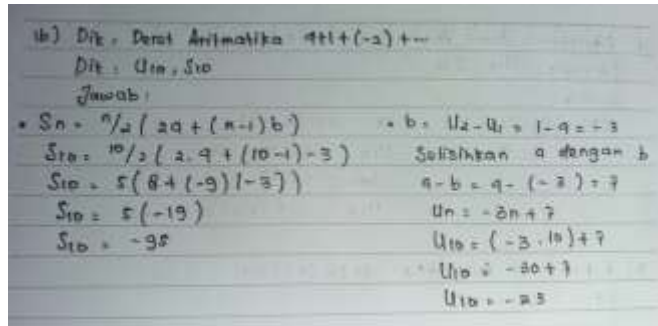 16) Dik : Deret Aritmatika 4+1+(-2)+...
Dit : U10, S10
Jawab :
• Sn = n/2 ( 2a + (n-1) b )
S10 = 10/2 ( 2.4 + (10-1) -3 )
S10 = 5 ( 8 + (-9) (-3))
S10 = 5 (-19)
S10 = -95
• b = U2 - U1 = 1-4 = -3
Selisihkan a dengan b
a - b = 4 - (-3) = 7
Un = -3n + 7
U10 = (-3 . 10) + 7
U10 = -30 + 7
U10 = -23